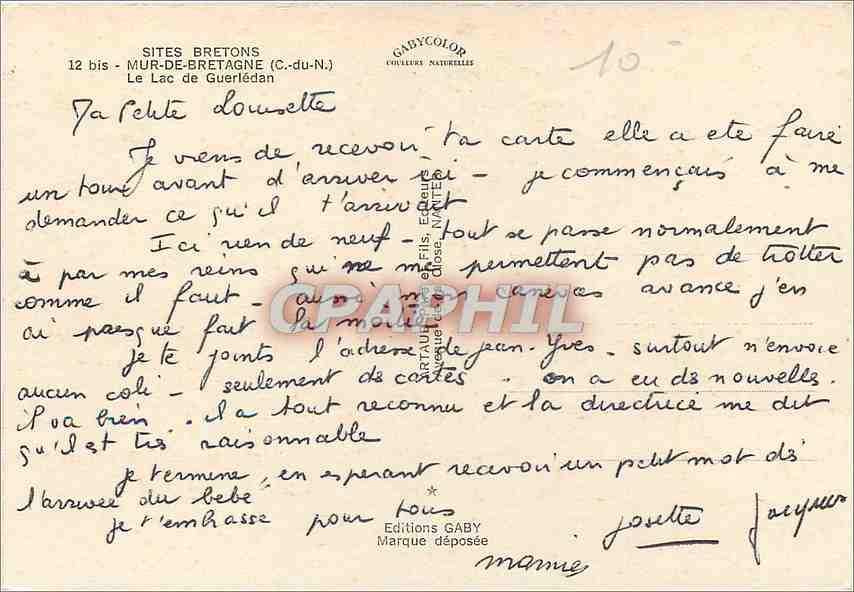 SITES BRETONS
12 bis - MUR-DE-BRETAGNE (C.-du-N.)
Le Lac de Guerlédan
GABYCOLOR
COULEURS NATURELLES
10
Ma Petite Lousette
Je viens de recevoir ta carte elle a ete faire
un tour avant d'arriver ici - je commençais à me
demander ce qu'il t'arrivait
Ici rien de neuf - tout se passe normalement
à par mes reins qui ne me permettent pas de trotter
comme il faut - aussi mon canevas avance j'en
ai presque fait la moitié
Je te joints l'adresse de jean-Yves. surtout n'envoie
aucun coli - seulement ds cartes. on a eu ds nouvelles.
il va bien. il a tout reconnu et la directrice me dit
qu'il est tres raisonnable
je termine, en esperant recevoir un petit mot ds
l'arrivee du bebe
je t'embrasse pour tous
josette
mamie
ARTAUD Père et Fils, Editeurs
Avenue de la Close, NANTES
Editions GABY
Marque déposée
CPAPHIL